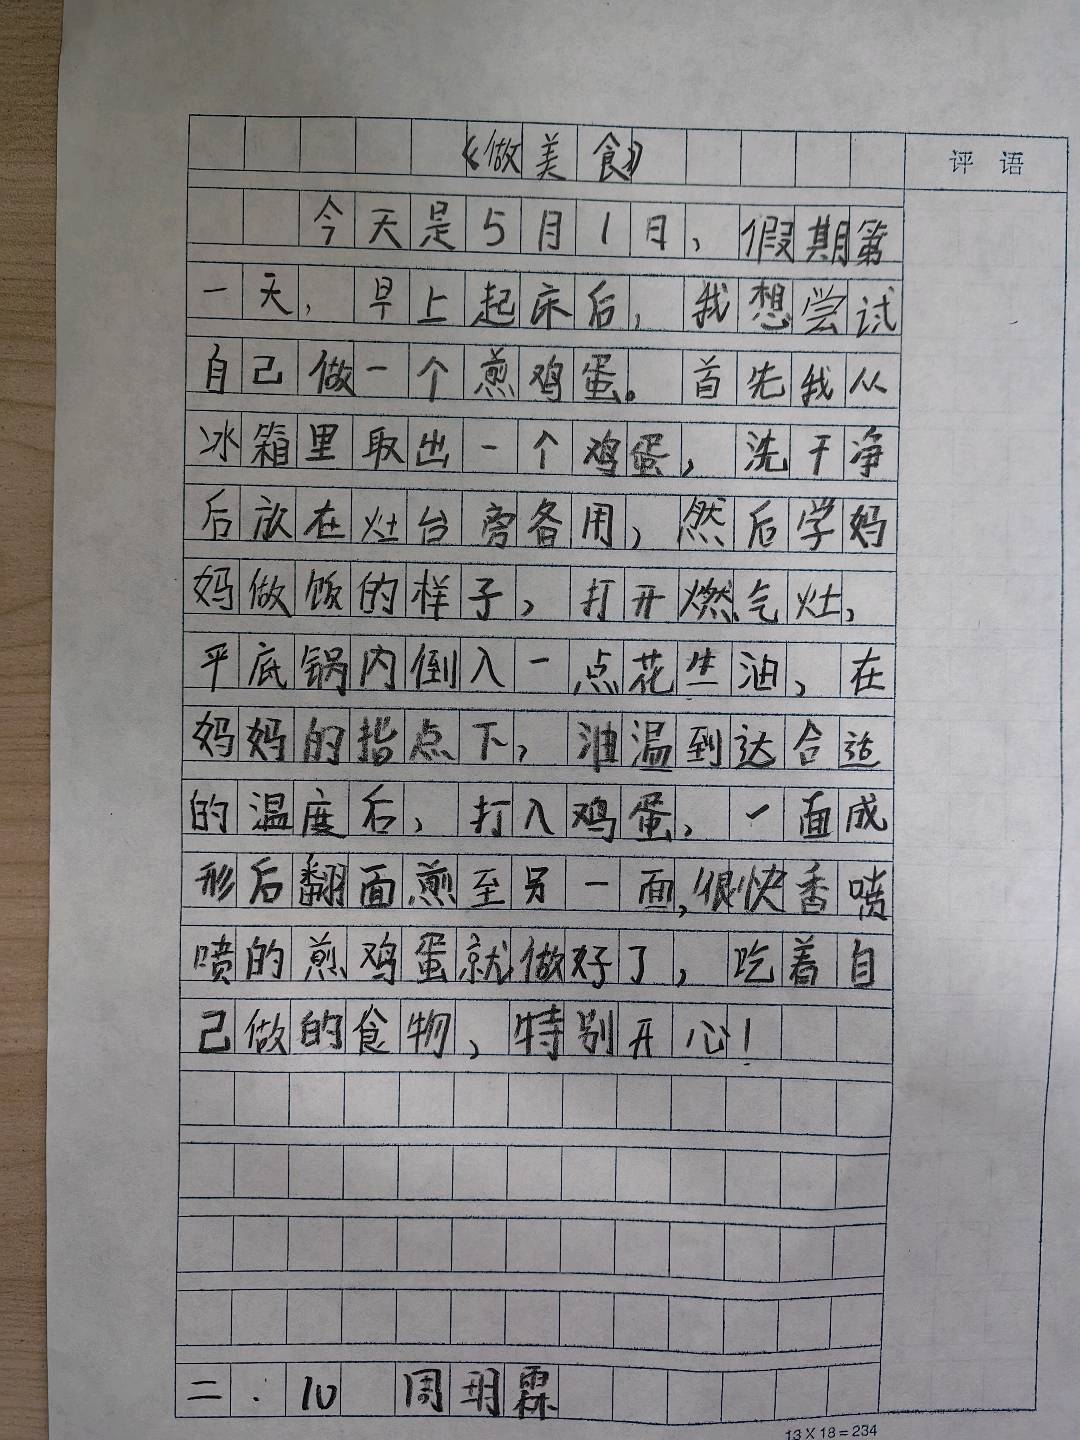 《做美食》
评 语
今天是5月1日，假期第
一天，早上起床后，我想尝试
自己做一个煎鸡蛋。首先我从
冰箱里取出一个鸡蛋，洗干净
后放在灶台旁备用，然后学妈
妈做饭的样子，打开燃气灶，
平底锅内倒入一点花生油，在
妈妈的指点下，油温到达合适
的温度后，打入鸡蛋，一面成
形后翻面煎至另一面，很快香喷
喷的煎鸡蛋就做好了，吃着自
己做的食物，特别开心！
二．10 周玥霖
13×18=234